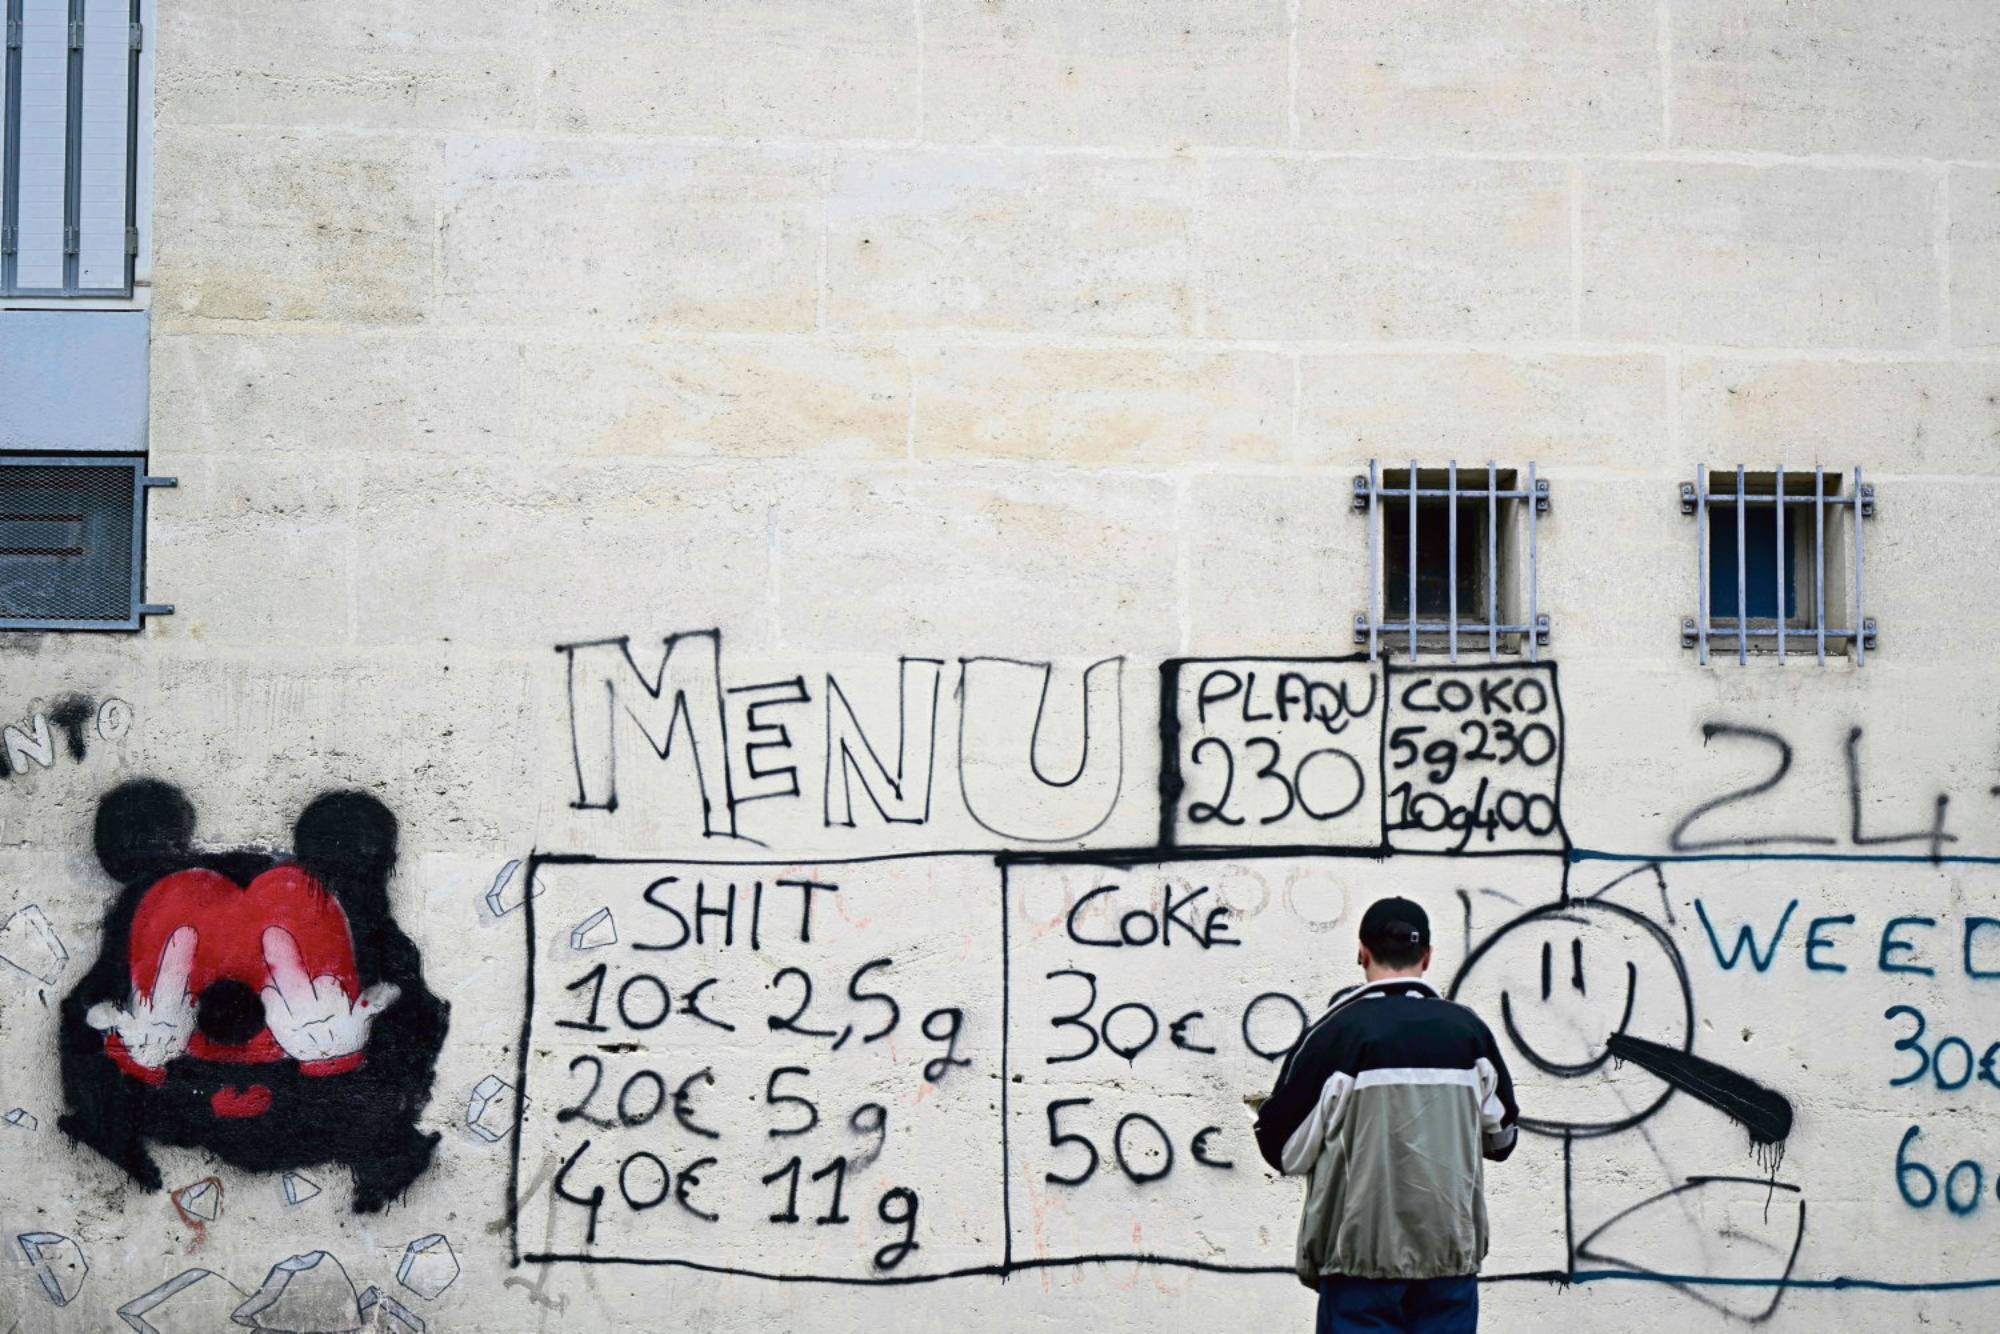 NTO
MENU
PLAQU
230
COKO
5g 230
10g 400
SHIT
10€ 2,5g
20€ 5g
40€ 11g
COKE
30€ 0
50€
WEED
30€
60